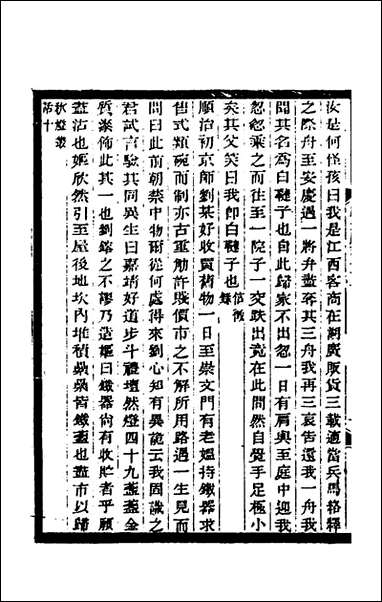 汝是何怪孩曰我是江西客商在湖廣販貨三載適當兵馬絡繹
之際舟至安慶遇一將弁盡奪其三舟我再三哀告還我一舟我
問其名爲白韃子也自此歸家不出忽一日有肩輿至庭中迎我
忽忽乘之而往至一院子一交跌出竟在此間然自覺手足極小
矣其父笑曰我卽白韃子也
順治初京師劉某好收買舊物一日至崇文門有老嫗持鐵器求
售式類碗而制亦古重觔許賤價市之不解所用路遇一生見而
問曰此前朝禁中物爾從何處得來劉心知有異詭云我固識之
君試言驗其同異生曰嘉靖好道步斗禮壇然燈四十九盞盞金
質藥佈此其一也劉鎔之不謬乃造嫗曰鐵器尚有收貯者乎願
盡沽也嫗欣然引至屋後地坎內堆積纍纍皆鐵盞也盡市以歸
秋燈叢
話十